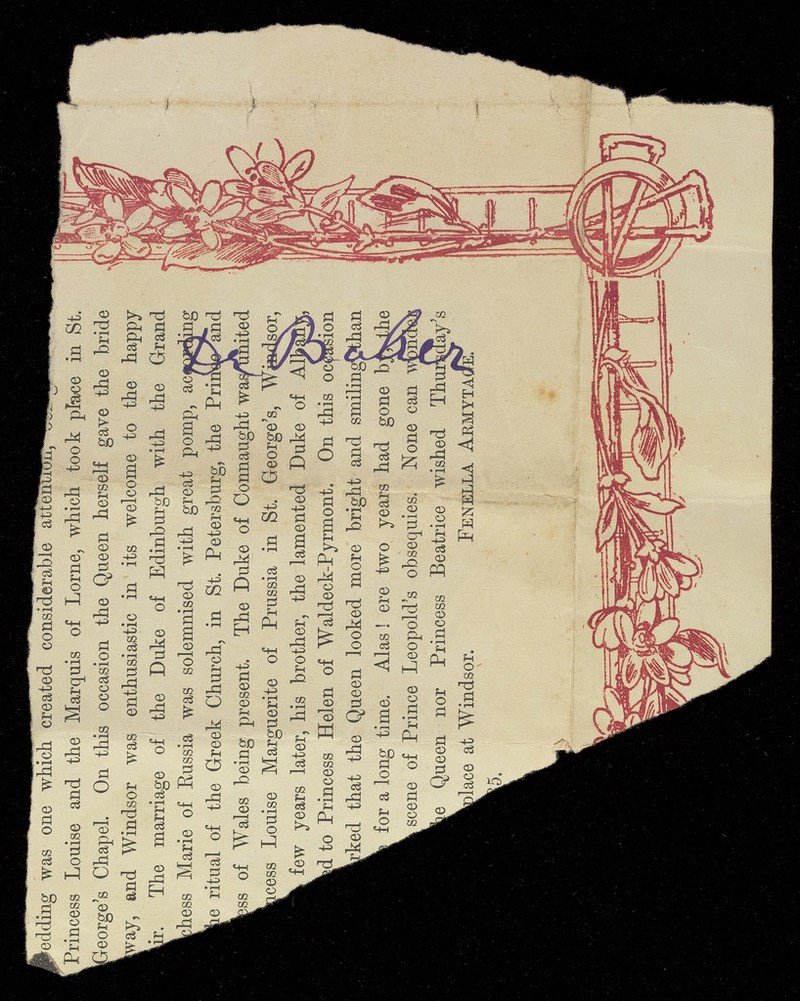 edding was one which created considerable attention,
Princess Louise and the Marquis of Lorne, which took place in St.
George's Chapel. On this occasion the Queen herself gave the bride
way, and Windsor was enthusiastic in its welcome to the happy
ir. The marriage of the Duke of Edinburgh with the Grand
chess Marie of Russia was solemnised with great pomp, according
he ritual of the Greek Church, in St. Petersburg, the Prince and
ess of Wales being present. The Duke of Connaught was united
ncess Louise Marguerite of Prussia in St. George's, Windsor,
few years later, his brother, the lamented Duke of Albany,
ed to Princess Helen of Waldeck-Pyrmont. On this occasion
rked that the Queen looked more bright and smiling than
for a long time. Alas! ere two years had gone by the
scene of Prince Leopold's obsequies. None can wonder
he Queen nor Princess Beatrice wished Thursday's
place at Windsor. FENELLA ARMYTAGE.
35.
De Baker